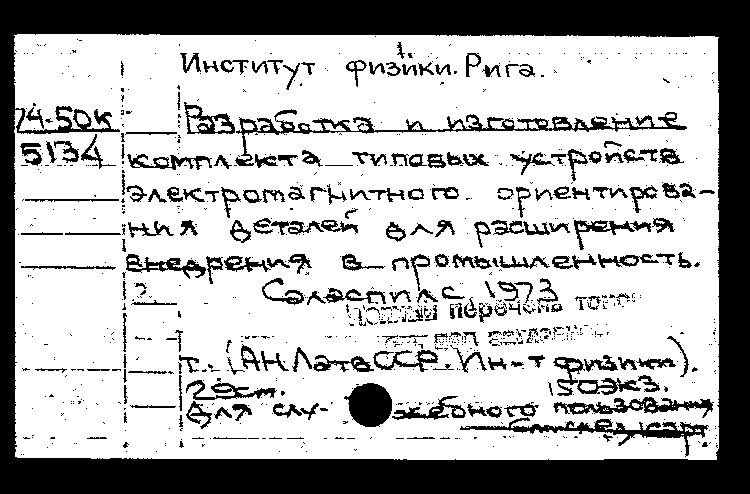 Институт физики. Рига.
74-50к Разработка и изготовление
5134 комплекта типовых устройств
электромагнитного ориентирова-
ния деталей для расширения
внедрения в промышленность.
2. Саласпилс 1973
Полный перечень томов
т. (АН ЛатвССР. Ин-т физики).
20 ст. 150 экз.
Для слу- жебного пользования